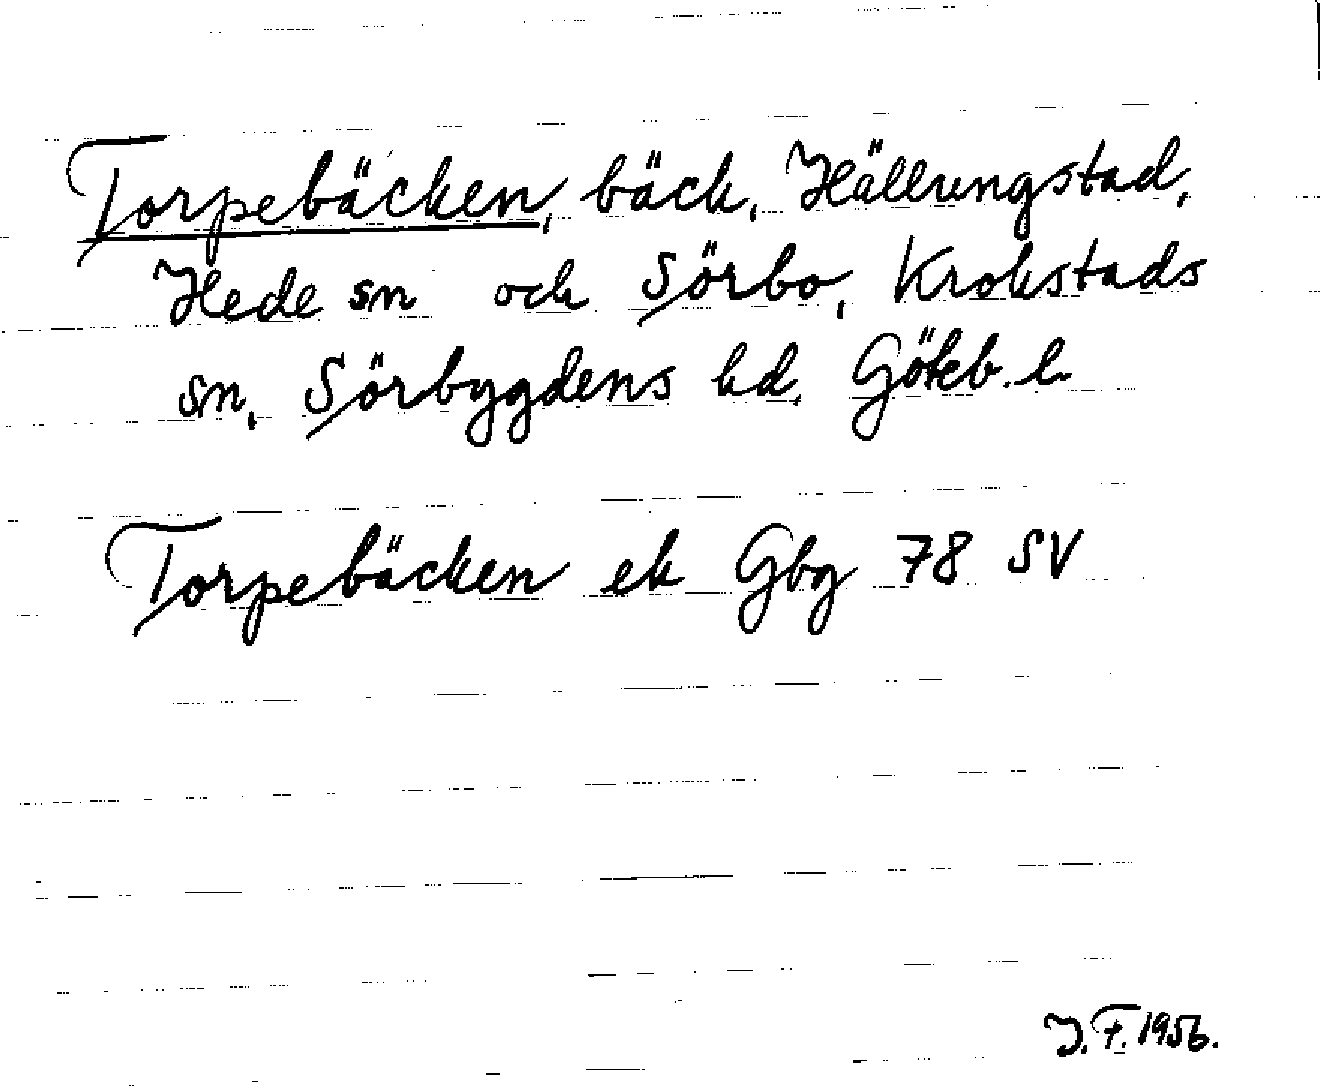 Torpebäcken, bäck, Hällungstad,
Hede sn och Sörbo, Krokstads
sn, Sörbygdens hd, Göteb. l.
Torpebäcken ek Gbg 78 SV
J.F. 1956.